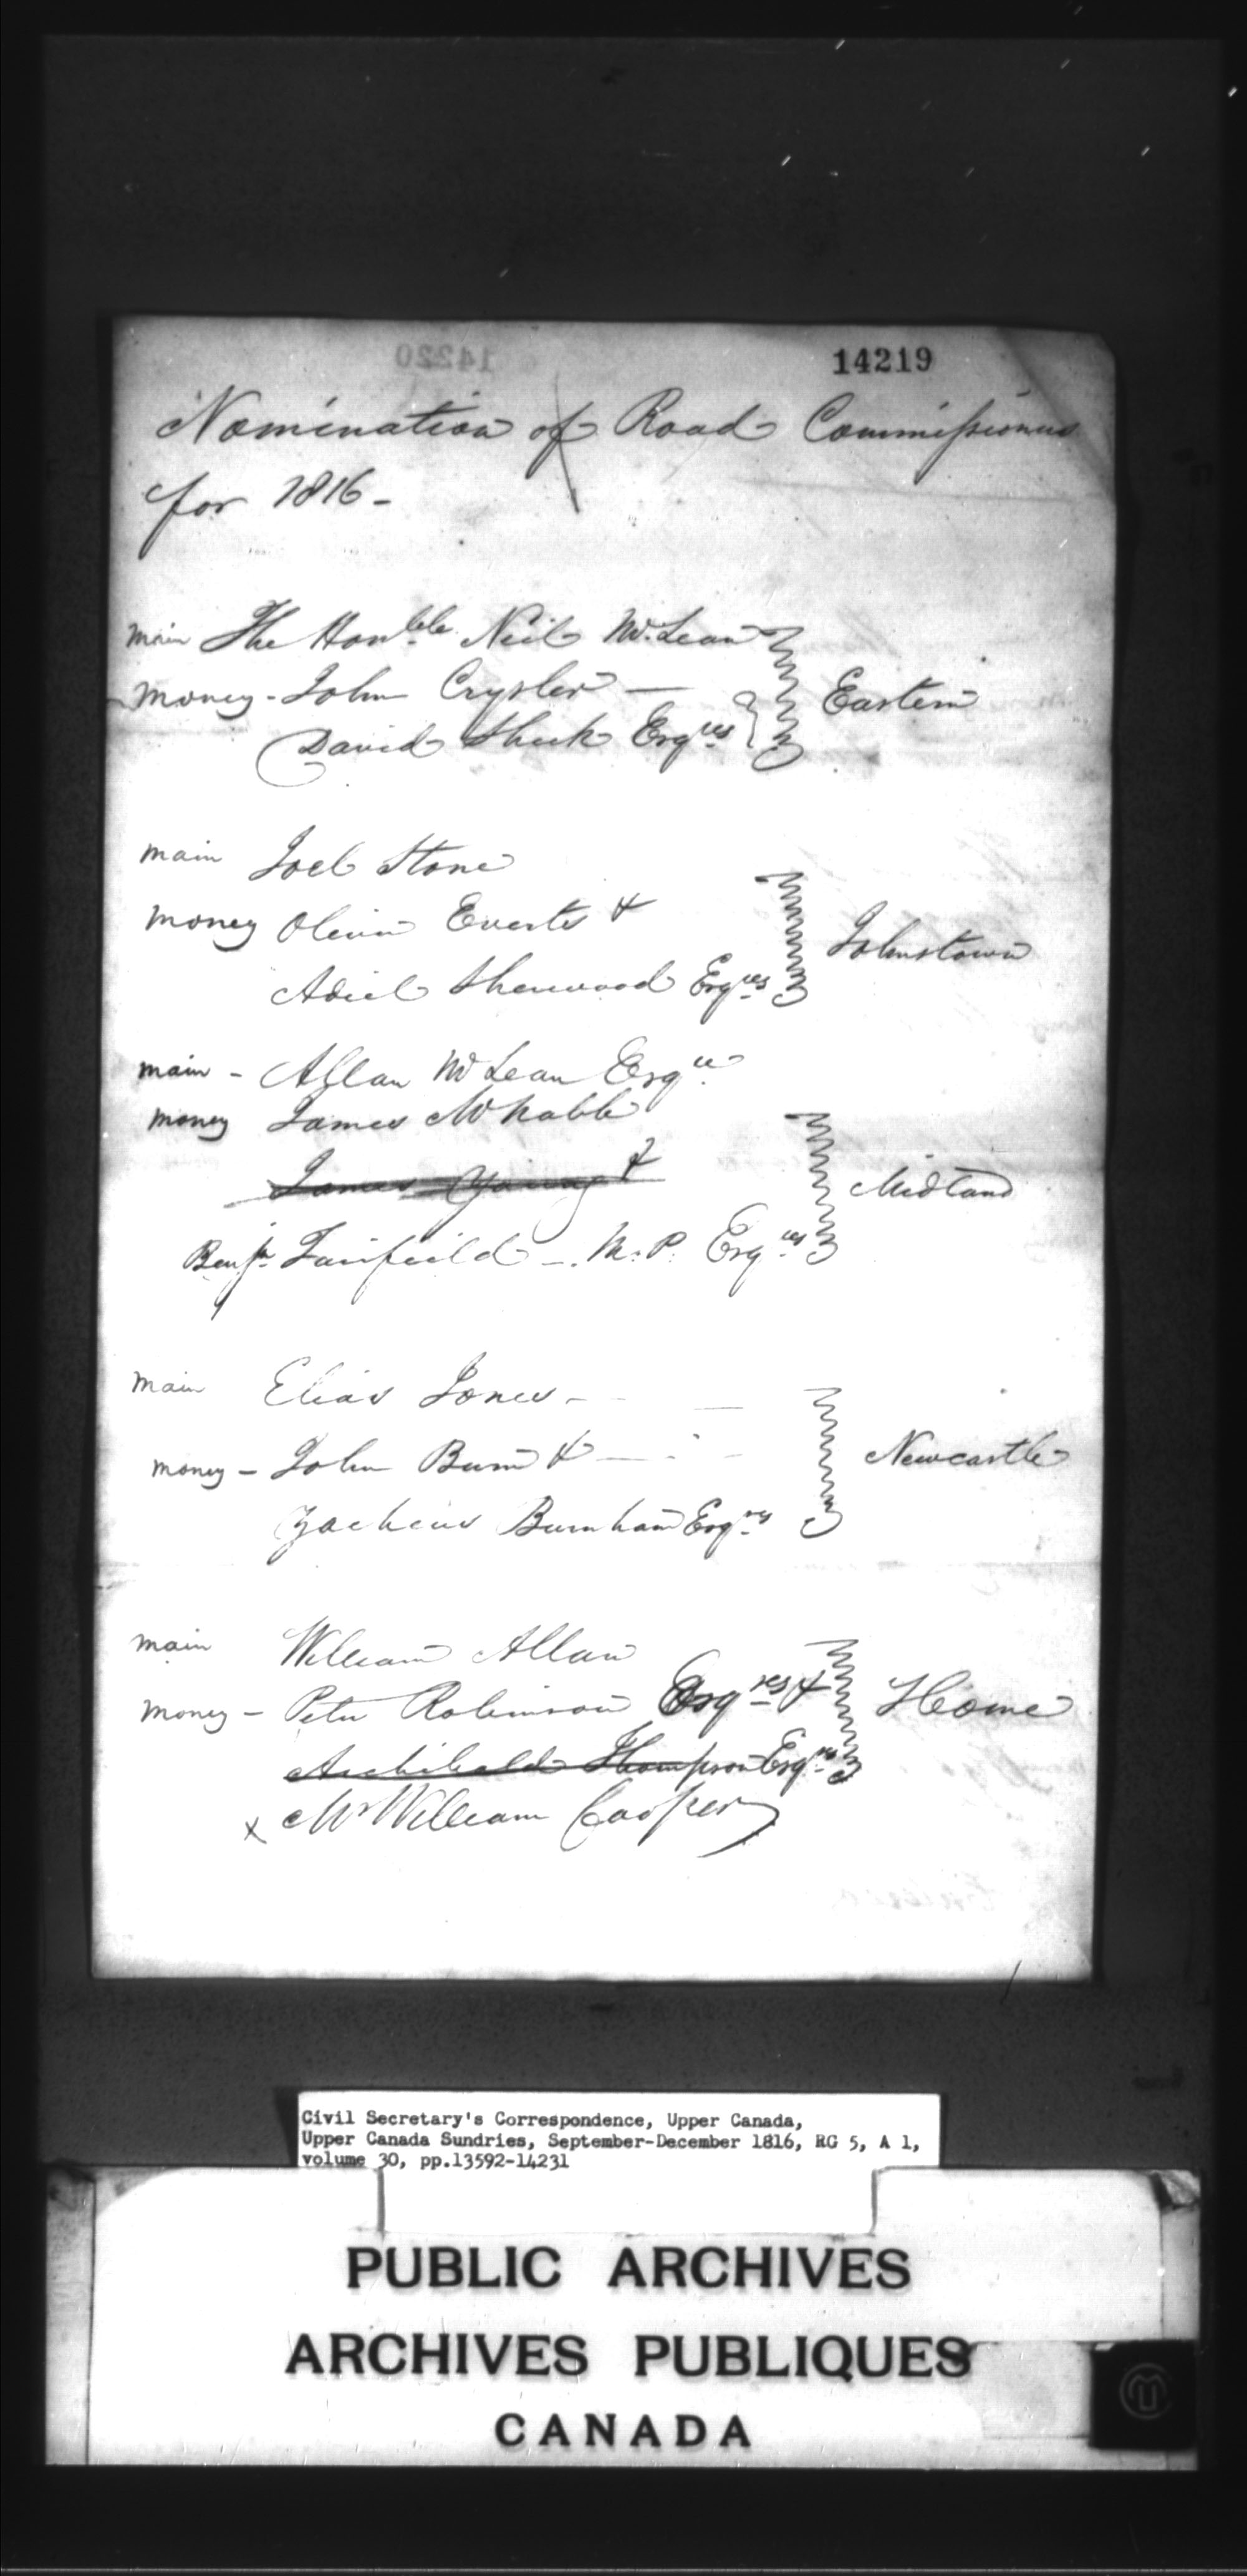 14220
14219
Nomination of Road Commissioners
for 1816 -
main The Honble. Neil McLean
money - John Crysler —
David Sheek Esqres
Eastern
main Joel Stone
money Olivir Everts &
Adiel Sherwood Esqres
Johnstown
main - Allan McLean Esqre
money James McNabb
James Young &
Benjn. Fairfeild - M.P. Esqres
Midland
main Elias Jones -
money - John Burn & —
Zacheus Burnham Esqres
Newcastle
main William Allan
money - Peter Robinson Esqres &
Archibald Thompson Esqres
x Mr William Cooper
Home
Civil Secretary's Correspondence, Upper Canada,
Upper Canada Sundries, September-December 1816, RG 5, A 1,
volume 30, pp.13592-14231
PUBLIC ARCHIVES
ARCHIVES PUBLIQUES
CANADA